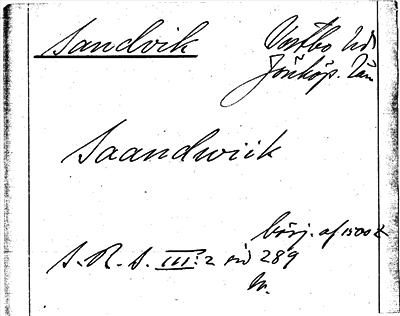 Sandvik Västbo hd
Jönköp. län
Saandwiik
börj. af 1500 t
S.R.S. III:2 sid 289